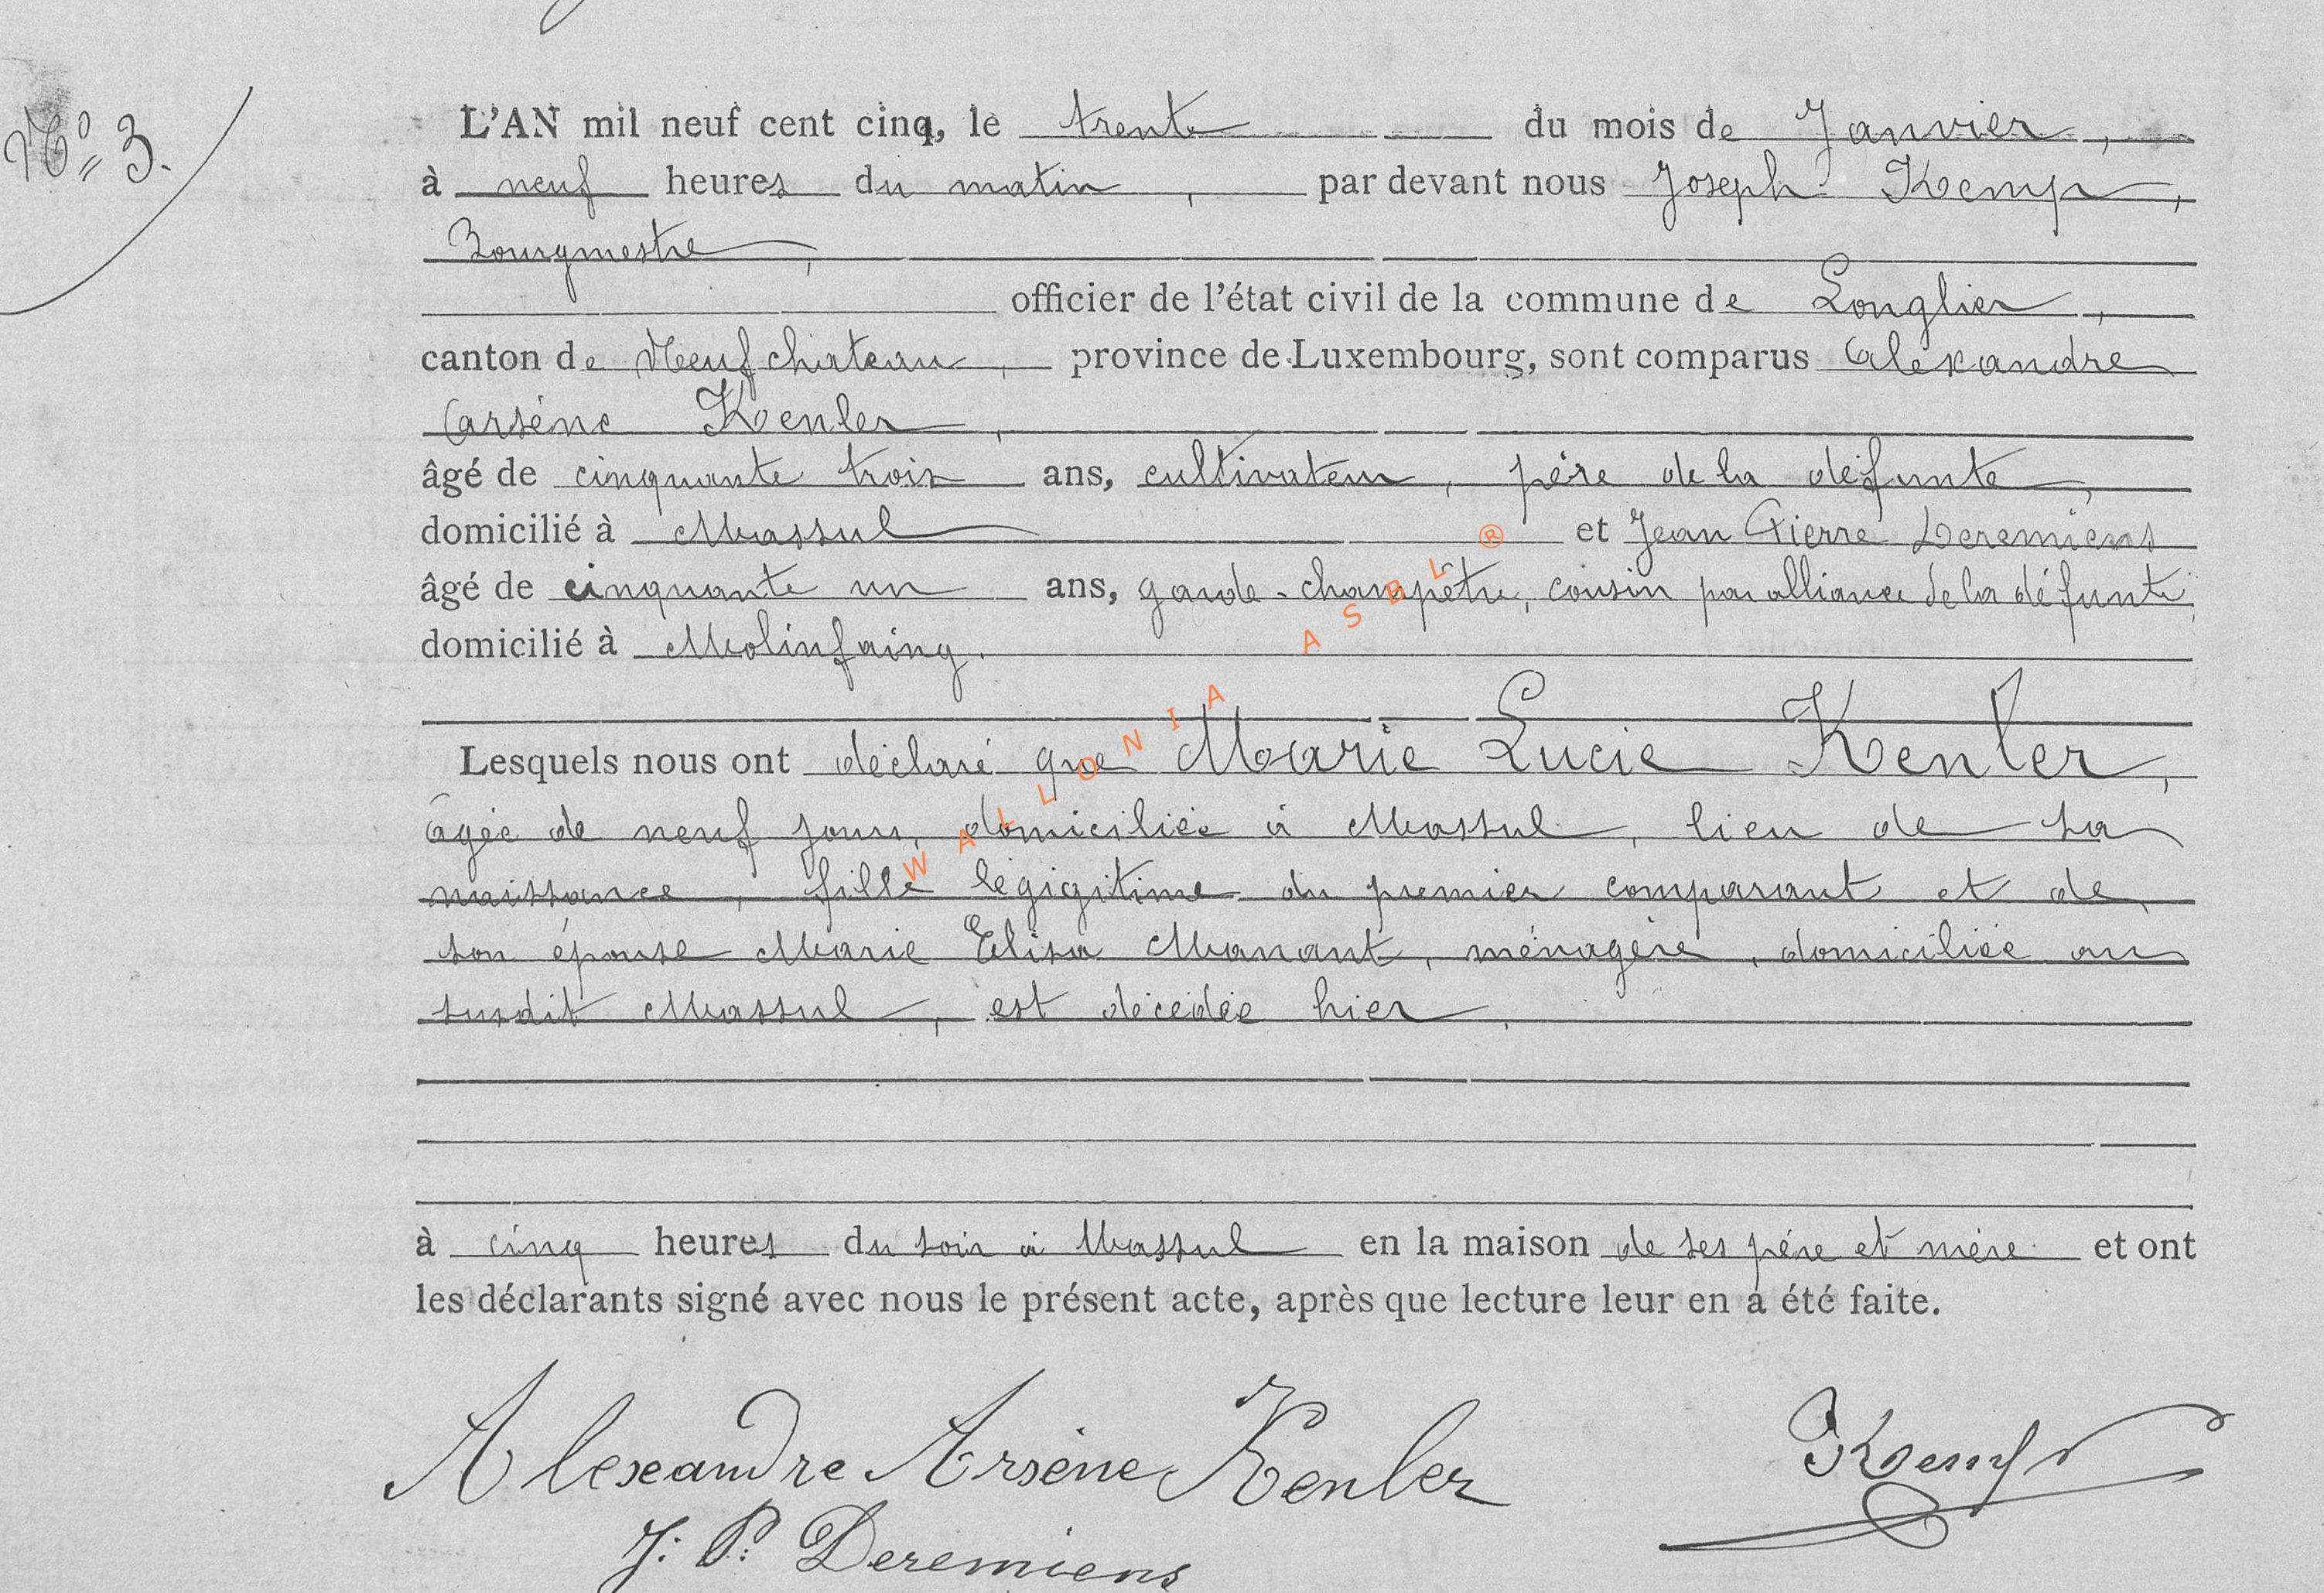 Nº 3.
L'AN mil neuf cent cinq, le trente du mois de Janvier,
à neuf heures du matin, par devant nous Joseph Kemp,
Bourgmestre,
officier de l'état civil de la commune de Longlier,
canton de Neufchateau, province de Luxembourg, sont comparus Alexandre
Arsène Kenler,
âgé de cinquante trois ans, cultivateur, père de la défunte,
domicilié à Massul et Jean Pierre Deremiens
âgé de cinquante un ans, garde-champêtre, cousin par alliance de la défunte,
domicilié à Molinfaing.
Lesquels nous ont déclaré que Marie Lucie Kenler,
âgée de neuf jours, domiciliée à Massul, lieu de sa
naissance, fille légigitime du premier comparant et de
son épouse Marie Elisa Manant, ménagère, domiciliée au
susdit Massul, est décédée hier,
à cinq heures du soir à Massul en la maison de ses père et mère et ont
les déclarants signé avec nous le présent acte, après que lecture leur en a été faite.
Alexandre Arsène Kenler
JKemp
J. P. Deremiens
WALLONIA ASBL ®